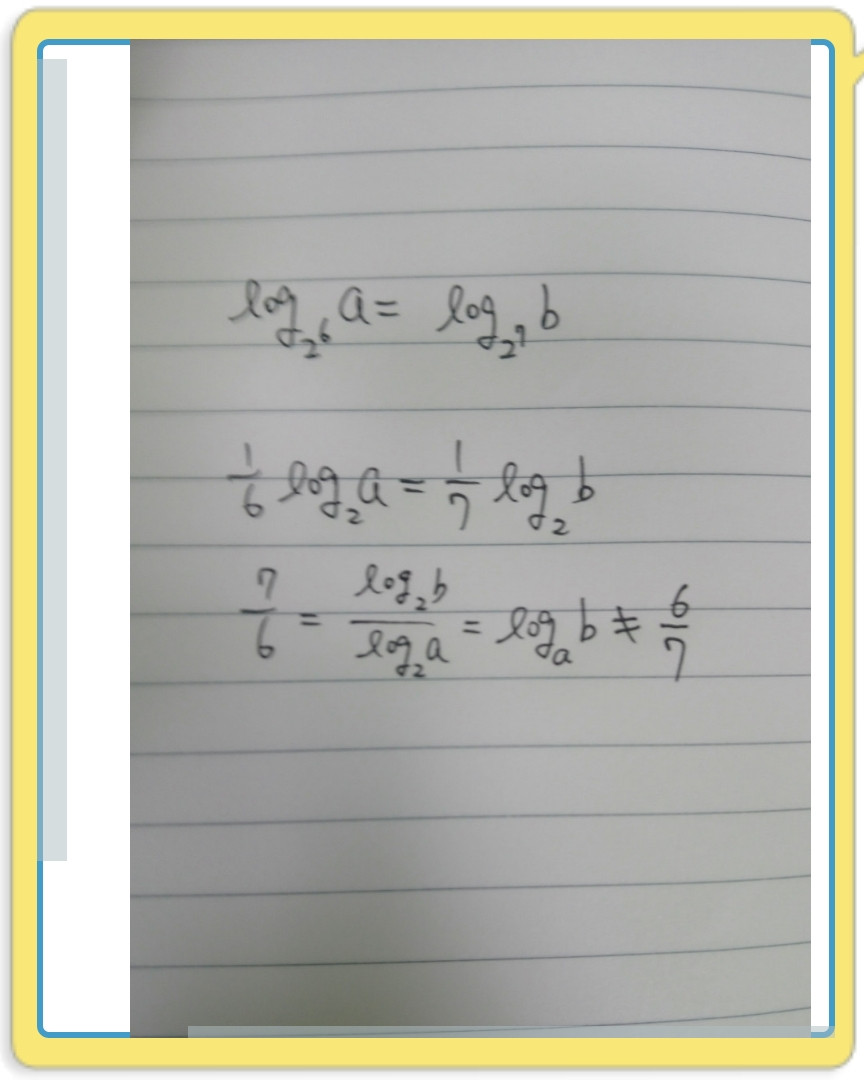 log_{2^6} a = log_{2^7} b
1/6 log_2 a = 1/7 log_2 b
7/6 = log_2 b / log_2 a = log_a b ≠ 6/7